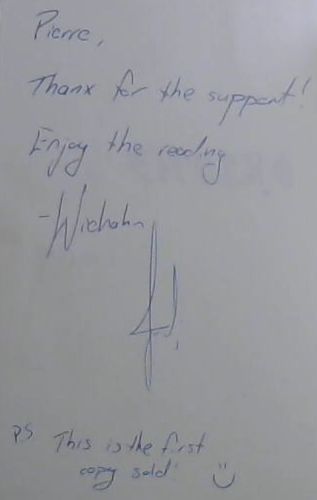 Pierre,
Thanx for the support!
Enjoy the reading
-Wichahn
PS This is the first
copy sold!